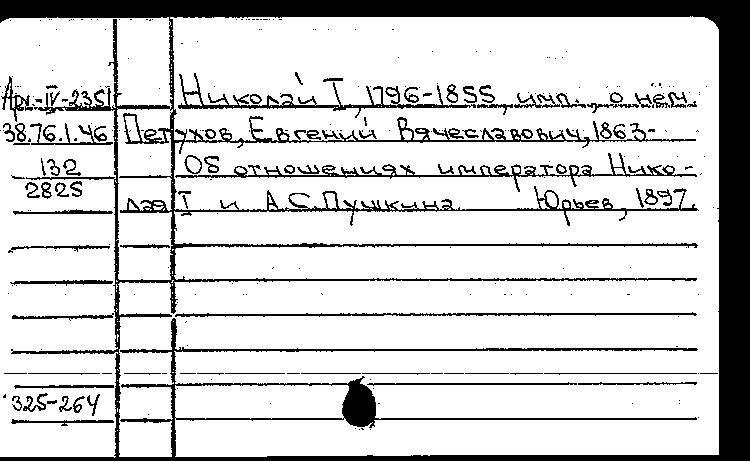 Арх.-IV-2351 Николай I, 1796-1855, имп., о нём.
38.76.1.46 Петухов, Евгений Вячеславович, 1863-
132 Об отношениях императора Нико-
2825
лая I и А.С.Пушкина Юрьев, 1897.
325-264